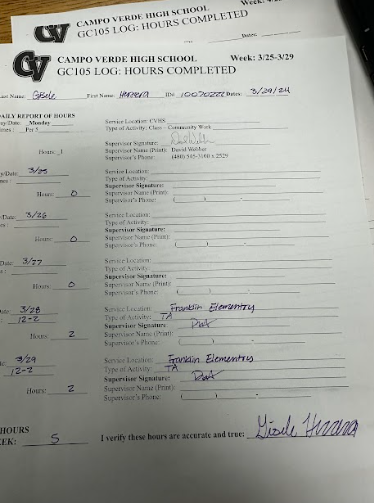 CAMPO VERDE HIGH SCHOOL Week:
GC105 LOG: HOURS COMPLETED
CV
CAMPO VERDE HIGH SCHOOL Week: 3/25-3/29
GC105 LOG: HOURS COMPLETED
Last Name: Gisele First Name: Herrera ID# Dates 3/29/24
DAILY REPORT OF HOURS
Day/Date: Monday Service Location: CVHS
Per 5 Type of Activity: Class - Community Work
Supervisor Signature:
Hours: 1 Supervisor Name (Print): David Webber
Supervisor's Phone: (480) 545-3100 x 2529
3/25 Service Location:
Type of Activity:
Supervisor Signature:
Hours: 0 Supervisor Name (Print):
Supervisor's Phone: ( ) -
3/26 Service Location:
Type of Activity:
Supervisor Signature:
Hours: 0 Supervisor Name (Print):
Supervisor's Phone: ( ) -
3/27 Service Location:
Type of Activity:
Supervisor Signature:
Hours: 0 Supervisor Name (Print):
Supervisor's Phone: ( ) -
3/28 Service Location: Franklin Elementry
12-2 Type of Activity: TA
Supervisor Signature
Hours 2 Supervisor Name (Print):
Supervisor's Phone: ( ) -
3/29 Service Location: Franklin Elementry
12-2 Type of Activity: TA
Supervisor Signature:
Hours: 2 Supervisor Name (Print):
Supervisor's Phone: ( ) -
HOURS
EEK: 5 I verify these hours are accurate and true: Gisele Herrera